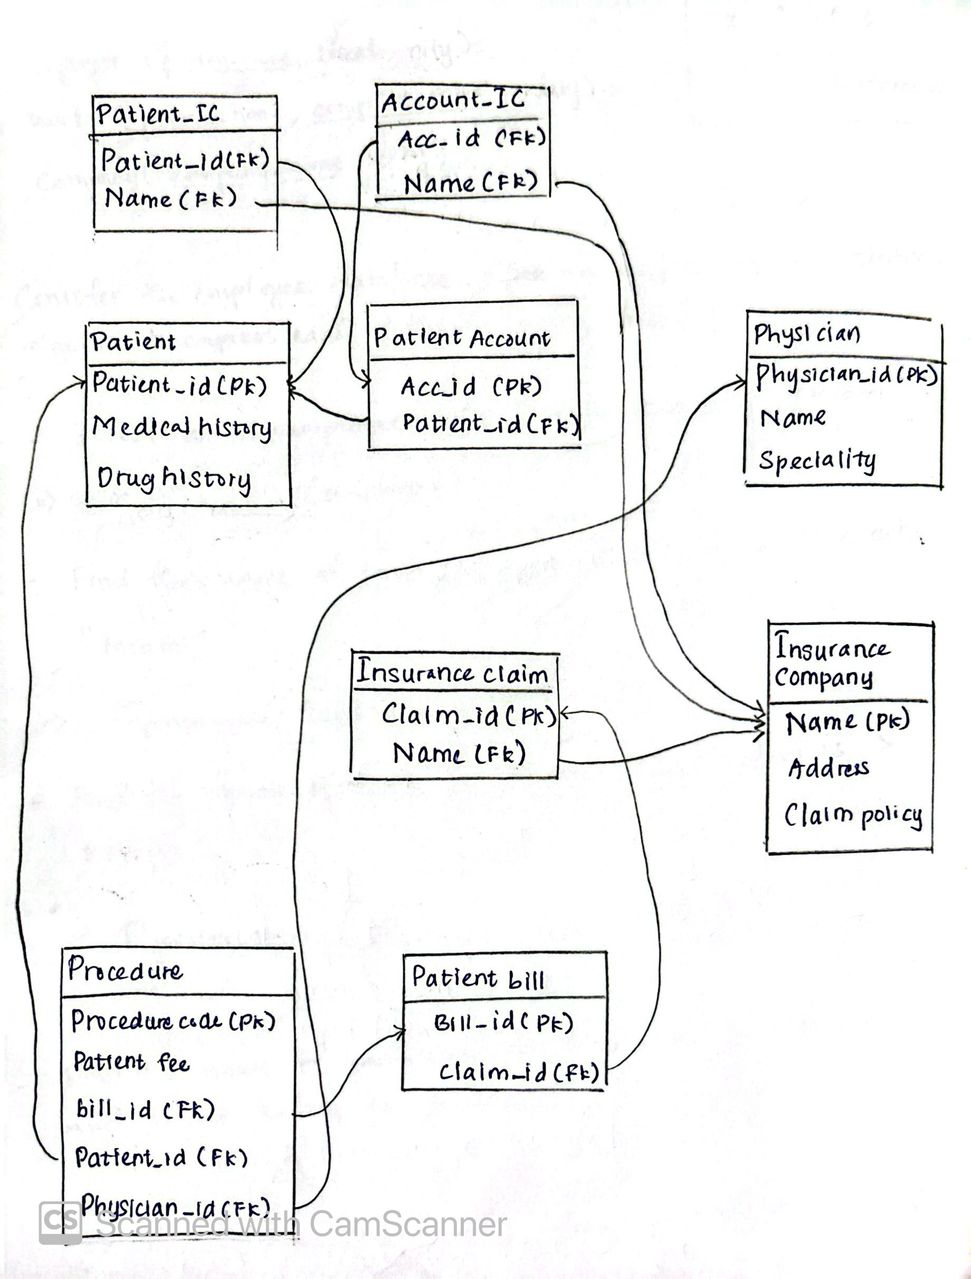 Patient_IC
Patient_id(FK)
Name (FK)
Account_IC
Acc_id (FK)
Name (FK)
Patient
Patient_id (PK)
Medical history
Drug history
Patient Account
Acc_id (PK)
Patient_id (FK)
Physician
Physician_id (PK)
Name
Speciality
Insurance claim
Claim_id (PK)
Name (FK)
Insurance
Company
Name (PK)
Address
Claim policy
Procedure
Procedure code (PK)
Patient fee
bill_id (FK)
Patient_id (FK)
Physician_id (FK)
Patient bill
Bill_id (PK)
Claim_id (FK)
CS Scanned with CamScanner